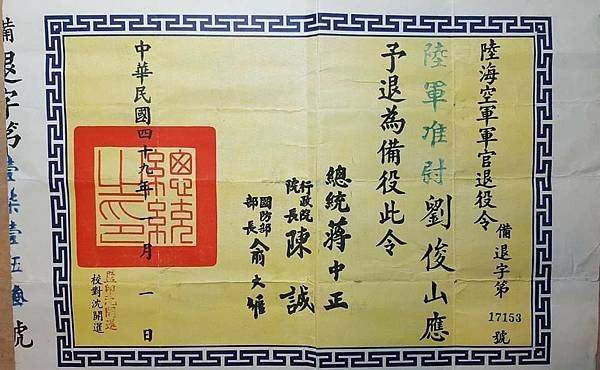 陸海空軍軍官退役令
備退字第17153號
陸軍准尉劉俊山應
予退為備役此令
總統蔣中正
行政院院長陳誠
國防部部長俞大維
總統之印
中華民國四十九年一月一日
監印沈開
校對沈開
備退字第壹柒壹伍叁號